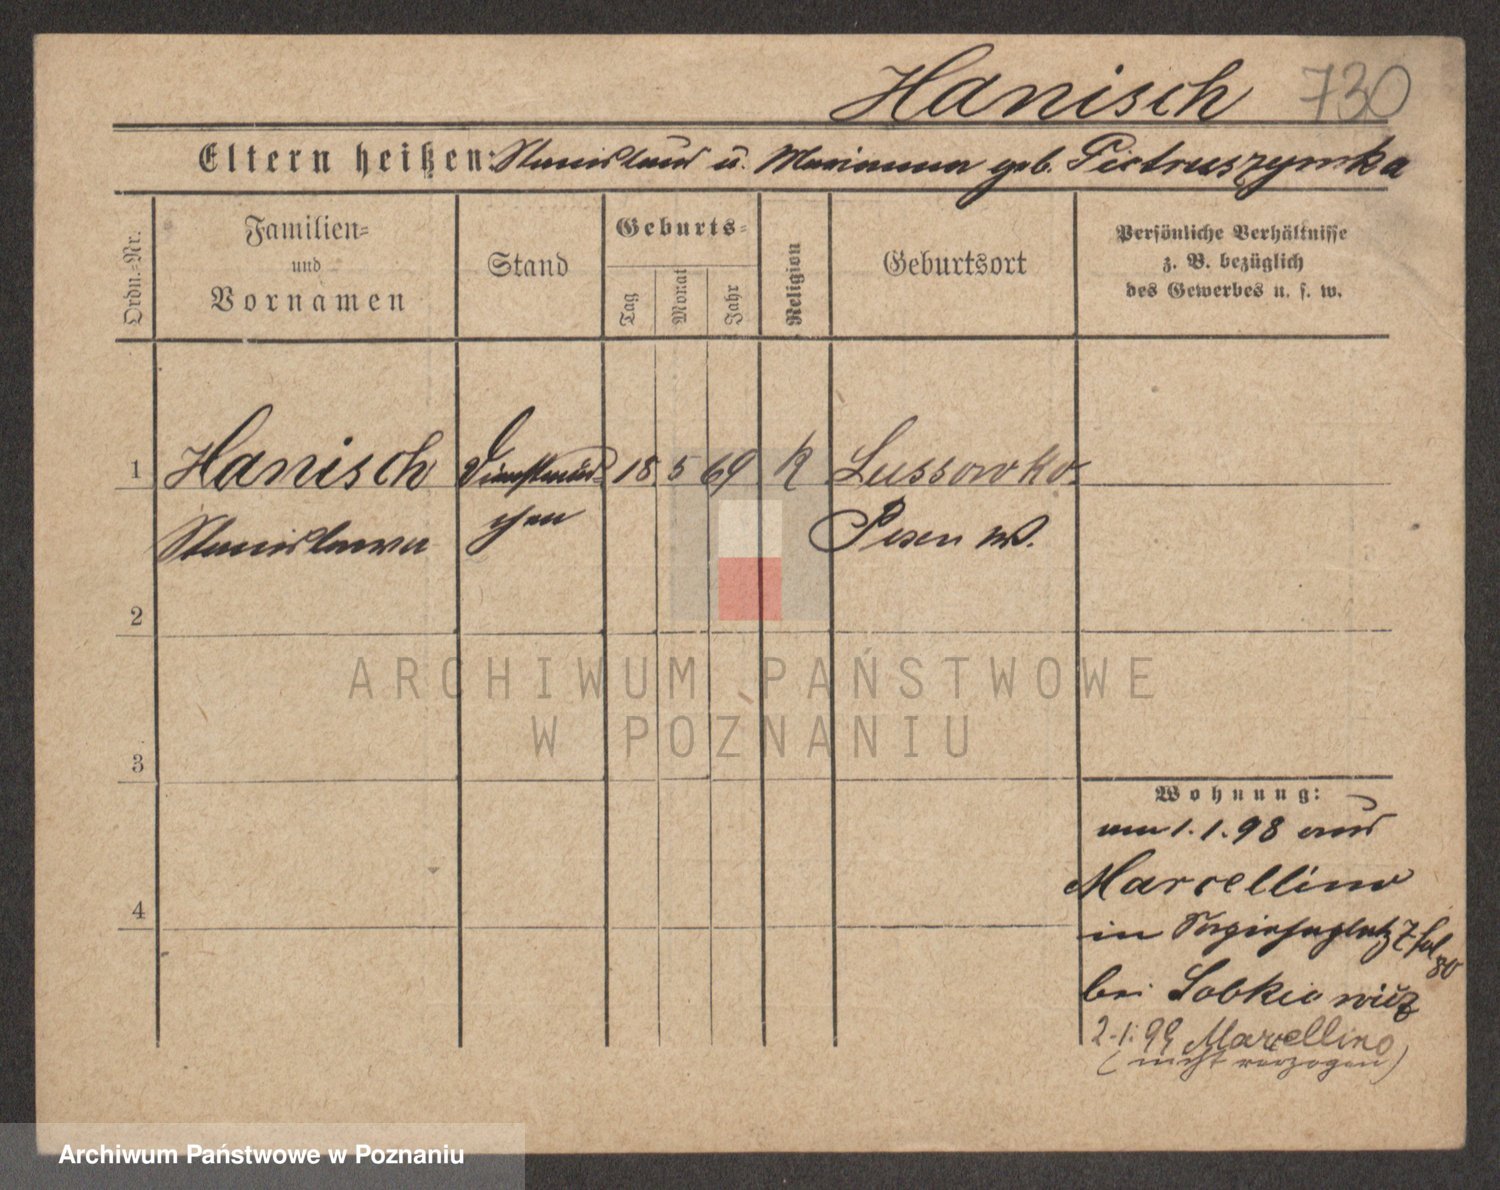 Hanisch 730
Eltern heißen: Stanislaus u. Marianna geb. Pietruszynska
Ordn.=Nr.
Familien=
und
Vornamen
Stand
Geburts=
Tag
Monat
Jahr
Religion
Geburtsort
Persönliche Verhältnisse
z. B. bezüglich
des Gewerbes u. s. w.
1 Hanisch Dienstmäd= 18 5 69 K Lussowko
Stanislawa chen Posen W.
2
3
4
Wohnung:
1.1.98 aus
Marcellino
in 7
bei Sobkiowicz
2.1.99 Marcellino
(nicht verzogen)
ARCHIWUM PAŃSTWOWE
W POZNANIU
Archiwum Państwowe w Poznaniu